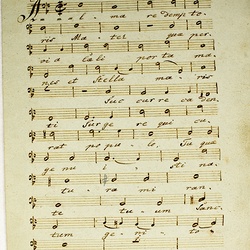 Al - ma re demp to
ris Ma - ter quae per
via caeli porta ma
nes et Stella maris
Suc cur re ca den
ti Sur ge re qui cu
rat po pu - lo, Tu quæ
ge nu i - sti na
tu - ra mi ran,
te tu um Sanc,
tum ge - ni - to